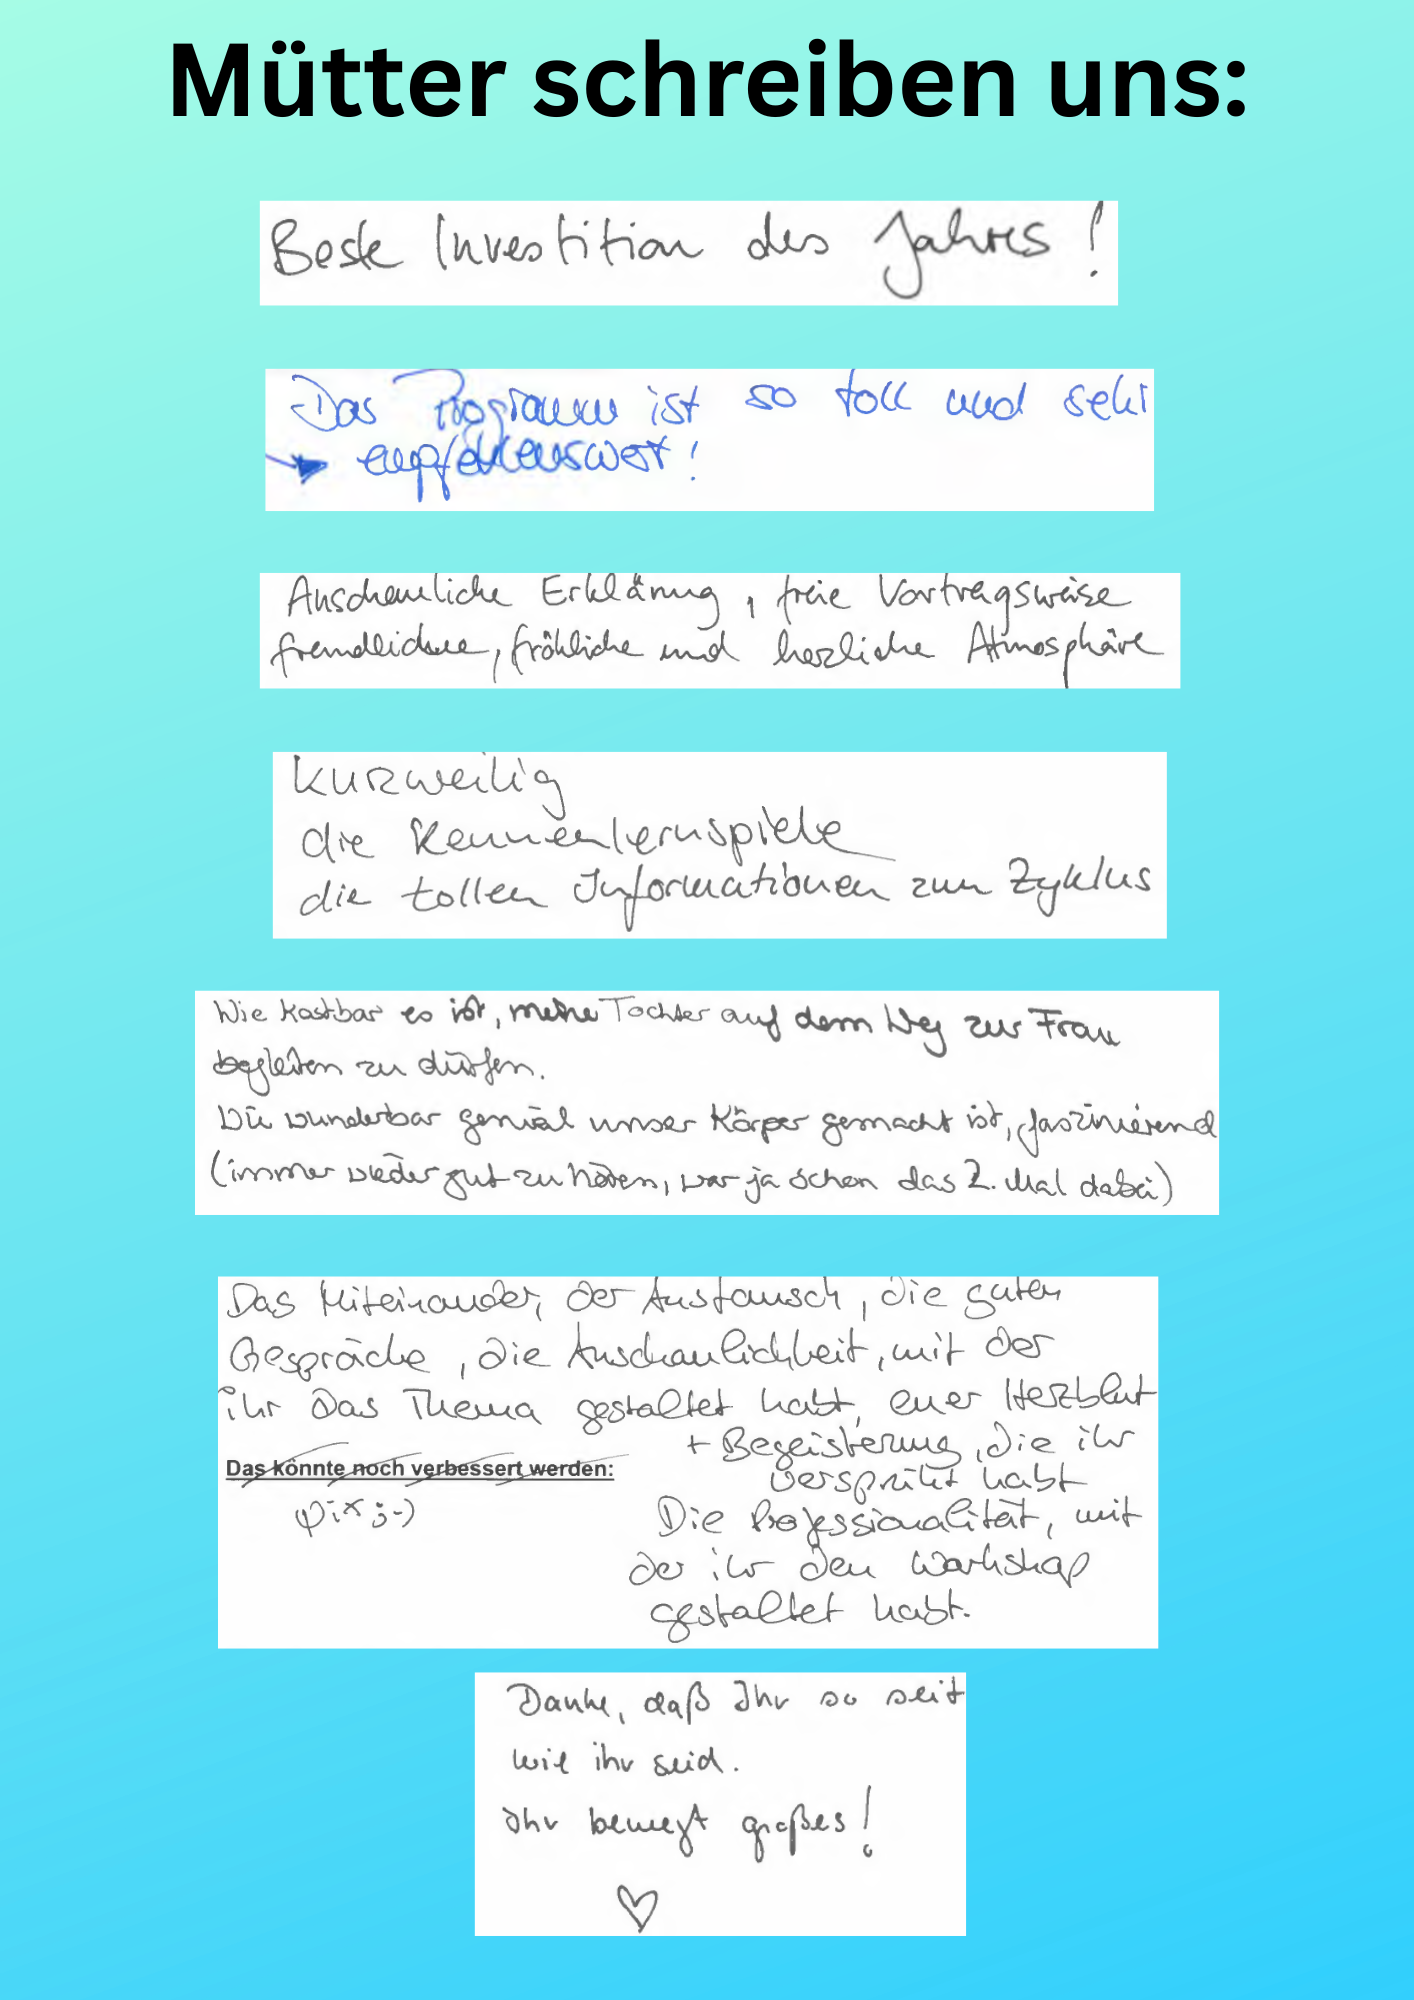 Mütter schreiben uns:
Beste Investition des Jahres!
Das Programm ist so toll und sehr
empfehlenswert!
Anschauliche Erklärung, freie Vortragsweise
freundliche, fröhliche und herzliche Atmosphäre
kurzweilig
die Kennenlernspiele
die tollen Informationen zum Zyklus
Wie kostbar es ist, meine Tochter auf dem Weg zur Frau
begleiten zu dürfen.
Wie wunderbar genial unser Körper gemacht ist, faszinierend
(immer wieder gut zu hören, war ja schon das 2. Mal dabei)
Das Miteinander, der Austausch, die guten
Gespräche, die Anschaulichkeit, mit der
ihr das Thema gestaltet habt, euer Herzblut
+ Begeisterung, die ihr
versprüht habt
Das könnte noch verbessert werden:
nix ;-)
Die Professionalität, mit
der ihr den Workshop
gestaltet habt.
Danke, daß Ihr so seit
wie ihr seid.
Ihr bewegt großes!